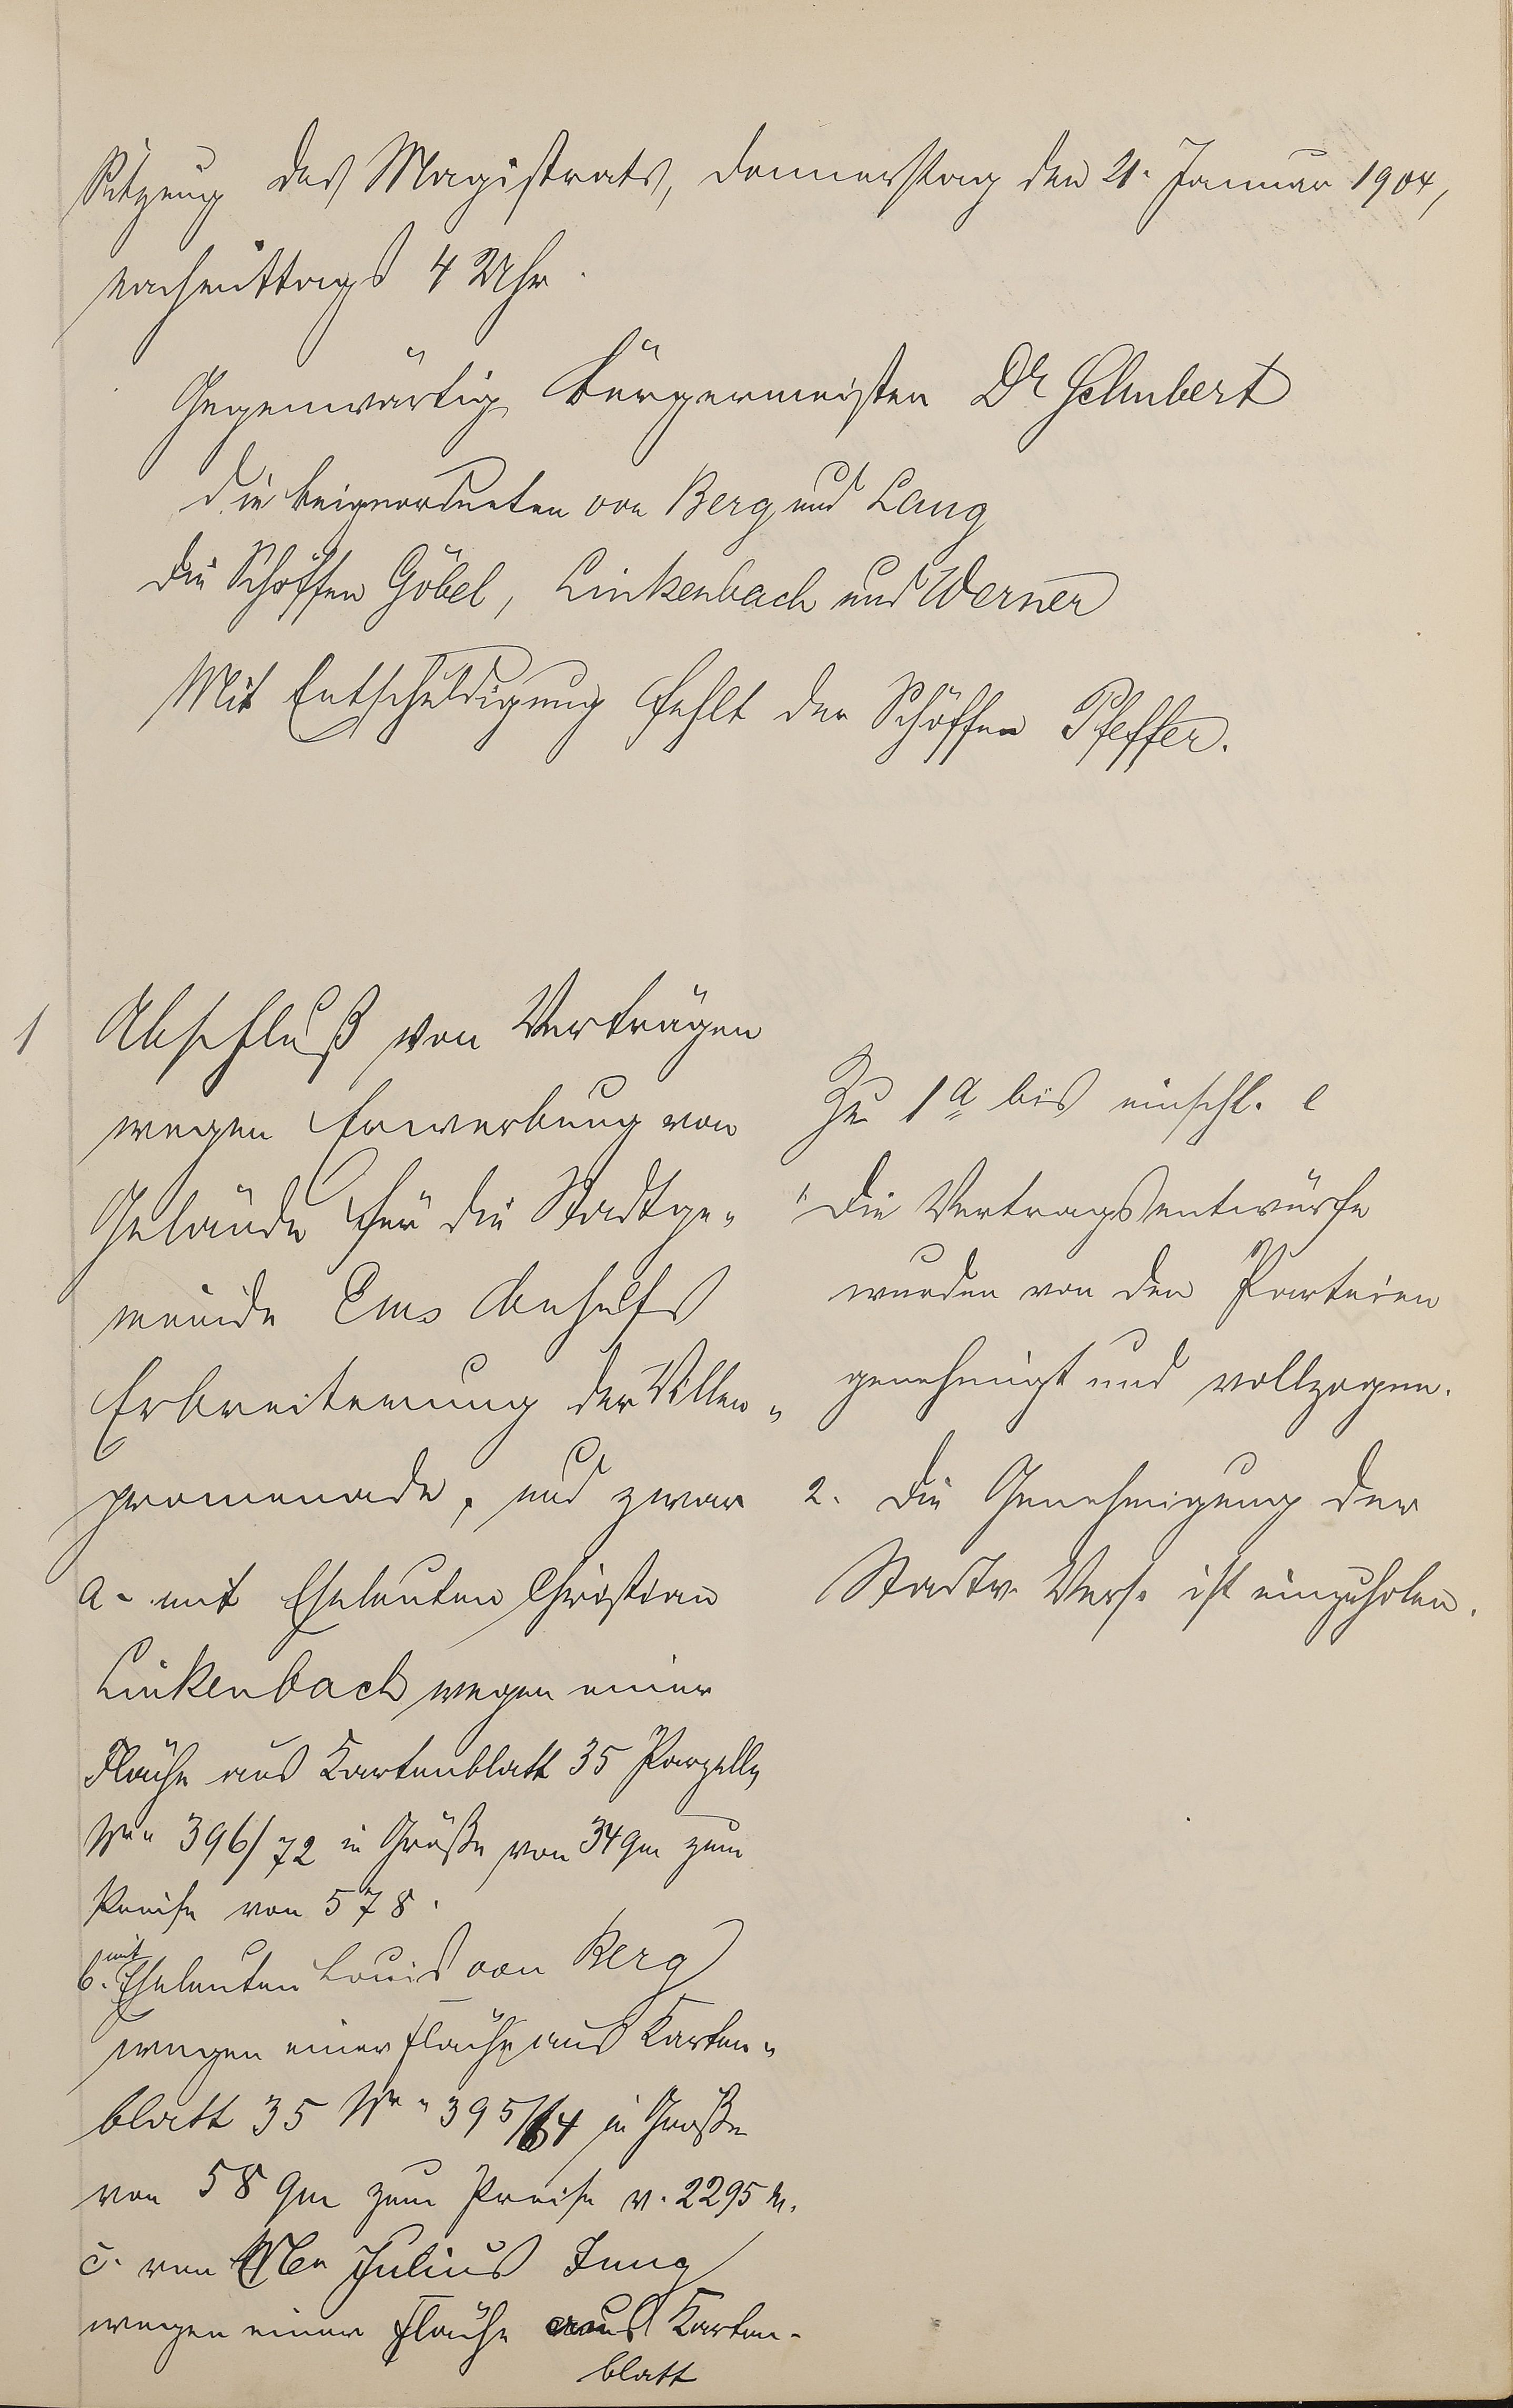 Sitzung des Magistrats, Donnerstag den 21. Januar 1904,
nachmittags 4 Uhr.
Gegenwärtig Bürgermeister Dr Schubert
die Beigeordneten von Berg und Lang
die Schöffen Göbel, Linkenbach und Werner
Mit Entschuldigung fehlt der Schöffen Pfeffer.
1 Abschluß von Verträgen
wegen Erwerbung von
Gelände für die Stadtge-
meinde Ems behufs
Erbreiterung der Villen-
promenade, und zwar
a. mit Eheleuten Christian
Linkenbach wegen einer
Fläche aus Kartenblatt 35 Parzelle
Nr. 396/72 in Größe von 34 qm zum
Preise von 578.
b. mit Eheleuten Louis von Berg
wegen einer Fläche aus Karten-
blatt 35 Nr. 395/64 in Größe
von 58 qm zum Preise v. 2295 M.
c. von Julius Jung
wegen einer Fläche aus Karten-
blatt
Zu 1 a bis einschl. e
1. Die Vertragsentwürfe
wurden von den Parteien
genehmigt und vollzogen.
2. Die Genehmigung der
Stadtv. Vers. ist einzuholen.